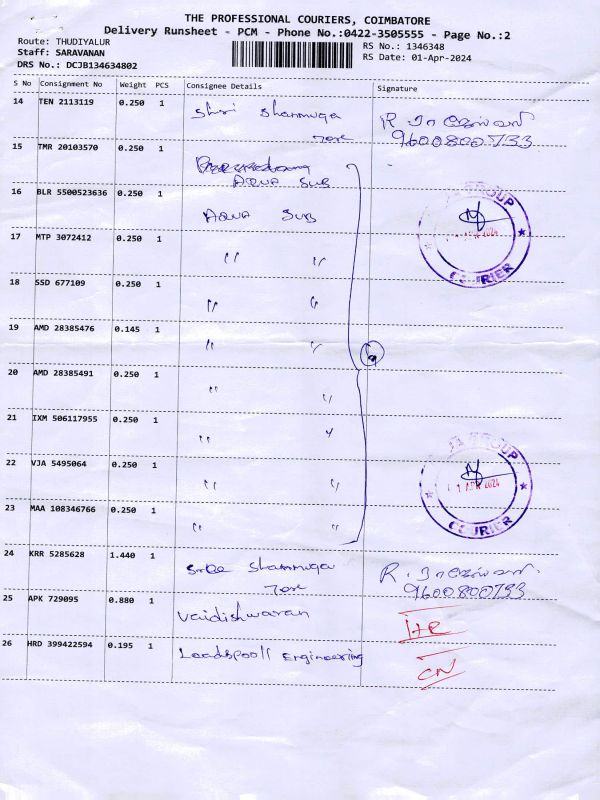 THE PROFESSIONAL COURIERS, COIMBATORE
Delivery Runsheet - PCM - Phone No.:0422-3505555 - Page No.:2
Route: THUDIYALUR
Staff: SARAVANAN
DRS No.: DCJB134634802
RS No.: 1346348
RS Date: 01-Apr-2024
S No Consignment No Weight PCS Consignee Details Signature
14 TEN 2113119 0.250 1 Shri Shanmuga
R. 9600800733
15 TMR 20103570 0.250 1
AQUA SUB
16 BLR 5500523636 0.250 1 AQUA SUB
GROUP
APR 2024
COURIER
17 MTP 3072412 0.250 1 " "
18 SSD 677109 0.250 1 " "
19 AMD 28385476 0.145 1 " "
20 AMD 28385491 0.250 1 " "
21 IXM 506117955 0.250 1 " "
22 VJA 5495064 0.250 1 " "
GROUP
1 APR 2024
COURIER
23 MAA 108346766 0.250 1 " "
24 KRR 5285628 1.440 1 Sree Shanmuga
R. 9600800733
25 APK 729095 0.880 1 Vaidishwaran
26 HRD 399422594 0.195 1 Leadspooll Engineering
CN